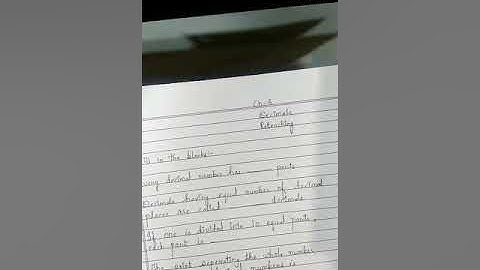 Ch-8
Decimals
Reteaching
in the blanks:-
very decimal number has ____ parts
Decimals having equal number of decimal
places are called ________ decimals
If one is divided into 10 equal parts,
each part is ____
The point seperating the whole number
numbers is